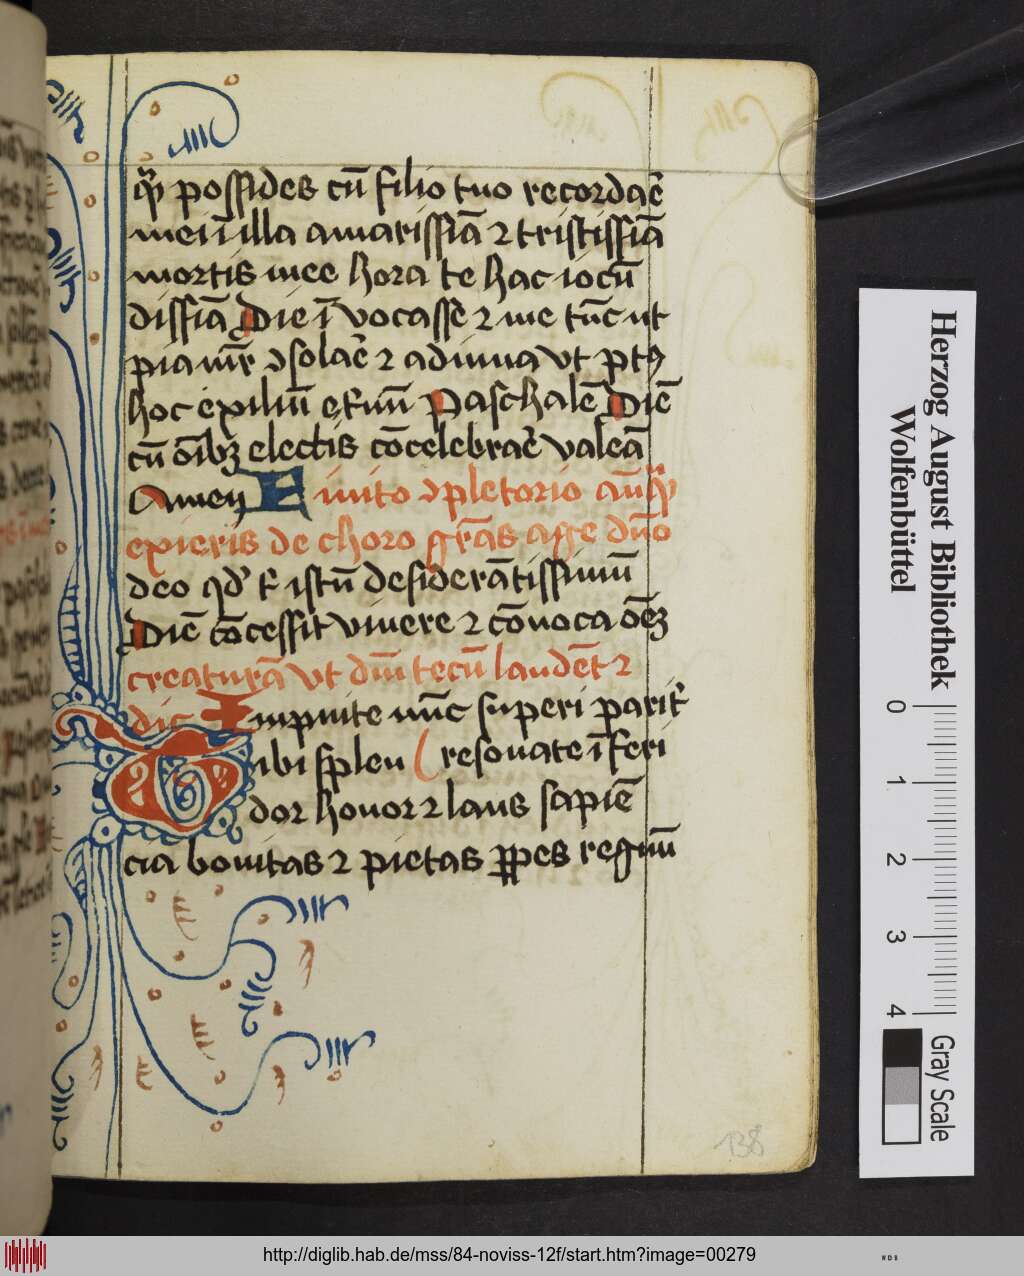 qͣm possides cū filio tuo recordaē
mei ī illa amarissīa ꝛ tristissīa
mortis mee hora te hac iocū
dissīa Die ī vocasse ꝛ me tūc ut
pia mr̄ ꝯsolaē ꝛ adiuua vt
hoc exiliū etͥnū Paschalē Diē
cū oībꝫ electis cōcelebraē valeā
Amen Finito ꝯpletorio
exieris de choro gr̄as age dn̄o
deo qd' t' istū desiderātissimū
Diē cōcessit viuere ꝛ cōuoca oēꝫ
creaturā vt dm̄ tecū laudēt ꝛ
dic Impnite nūc superi parit'
Tibi splen ( resonate īferi
dor honor ꝛ laus sapiē
cia bonitas ꝛ pietas ꝑpes regnū
138
Herzog August Bibliothek
Wolfenbüttel
0 1 2 3 4
Gray Scale
http://diglib.hab.de/mss/84-noviss-12f/start.htm?image=00279